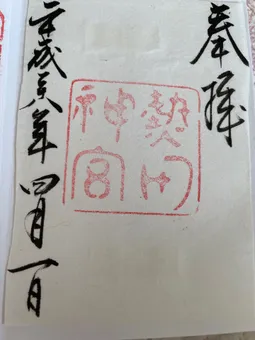 奉拝
熱田
神宮
平成 年四月一日